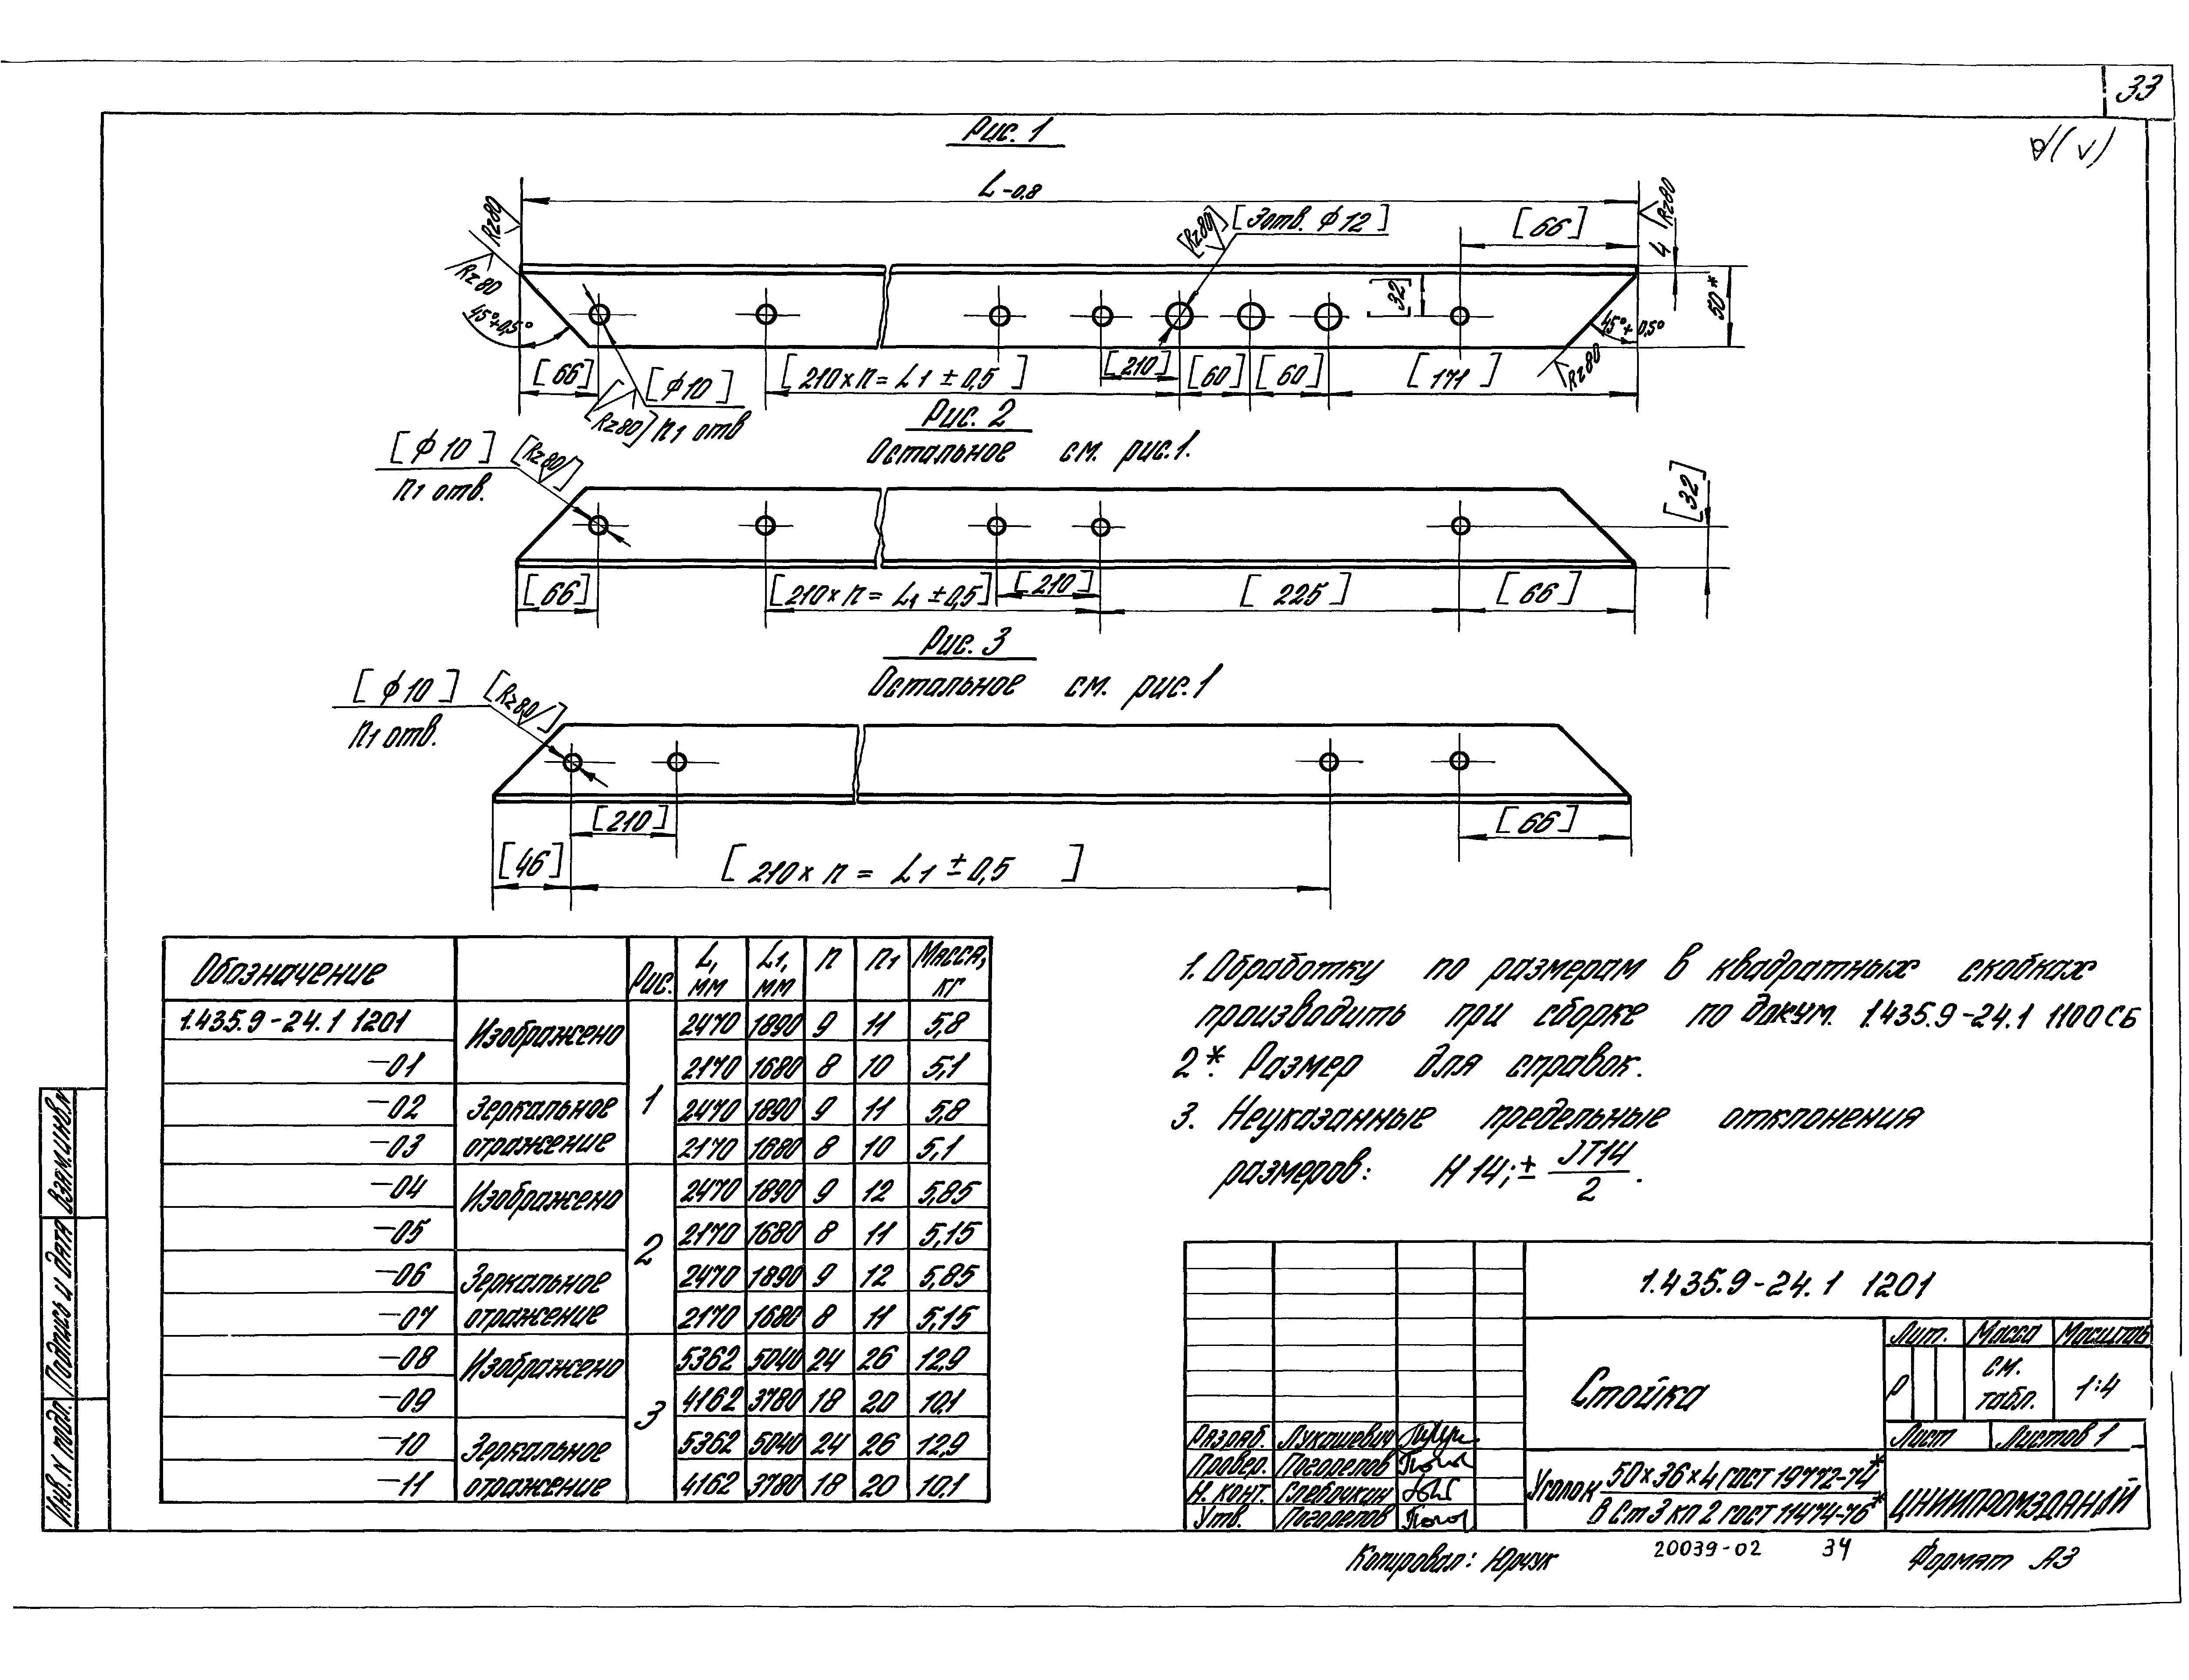 33
Рис. 1
L-0,8
Rz80
Rz80
[Rz80]
[3отв. ϕ12]
[66]
4
Rz80
50*
[32]
45°±0,5°
45°±0,5°
Rz80
[66]
[ϕ10]
[Rz80] n1 отв
[210×n=L1±0,5]
[210]
[60]
[60]
[171]
Рис. 2
Остальное см. рис.1.
[ϕ10]
[Rz80]
n1 отв.
[32]
[66]
[210×n=L1±0,5]
[210]
[225]
[66]
Рис. 3
Остальное см. рис.1
[ϕ10]
[Rz80]
n1 отв.
[210]
[66]
[46]
[210×n=L1±0,5]
Обозначение Рис. L, мм L1, мм n n1 Масса, кг
1.435.9-24.1 1201 Изображено 1 2470 1890 9 11 5,8
-01 2170 1680 8 10 5,1
-02 Зеркальное 2470 1890 9 11 5,8
-03 отражение 2170 1680 8 10 5,1
-04 Изображено 2 2470 1890 9 12 5,85
-05 2170 1680 8 11 5,15
-06 Зеркальное 2470 1890 9 12 5,85
-07 отражение 2170 1680 8 11 5,15
-08 Изображено 3 5362 5040 24 26 12,9
-09 4162 3780 18 20 10,1
-10 Зеркальное 5362 5040 24 26 12,9
-11 отражение 4162 3780 18 20 10,1
1. Обработку по размерам в квадратных скобках
производить при сборке по докум. 1.435.9-24.1 1100СБ
2*. Размер для справок.
3. Неуказанные предельные отклонения
размеров: H14; ± JT14/2.
1.435.9-24.1 1201
Стойка
Лит. Масса Масштаб
Р см. табл. 1:4
Лист Листов 1
Разраб. Лукашевич
Провер. Погорелов
Н. конт. Слебочкин
Утв. Погорелов
Уголок 50×36×4 ГОСТ 19772-74*
В Ст3 кп 2 ГОСТ 11474-76*
ЦНИИПРОМЗДАНИЙ
Копировал: Юрчук
20039-02 34
Формат А3
Взам. инв. N
Подпись и дата
Инв. N подл.